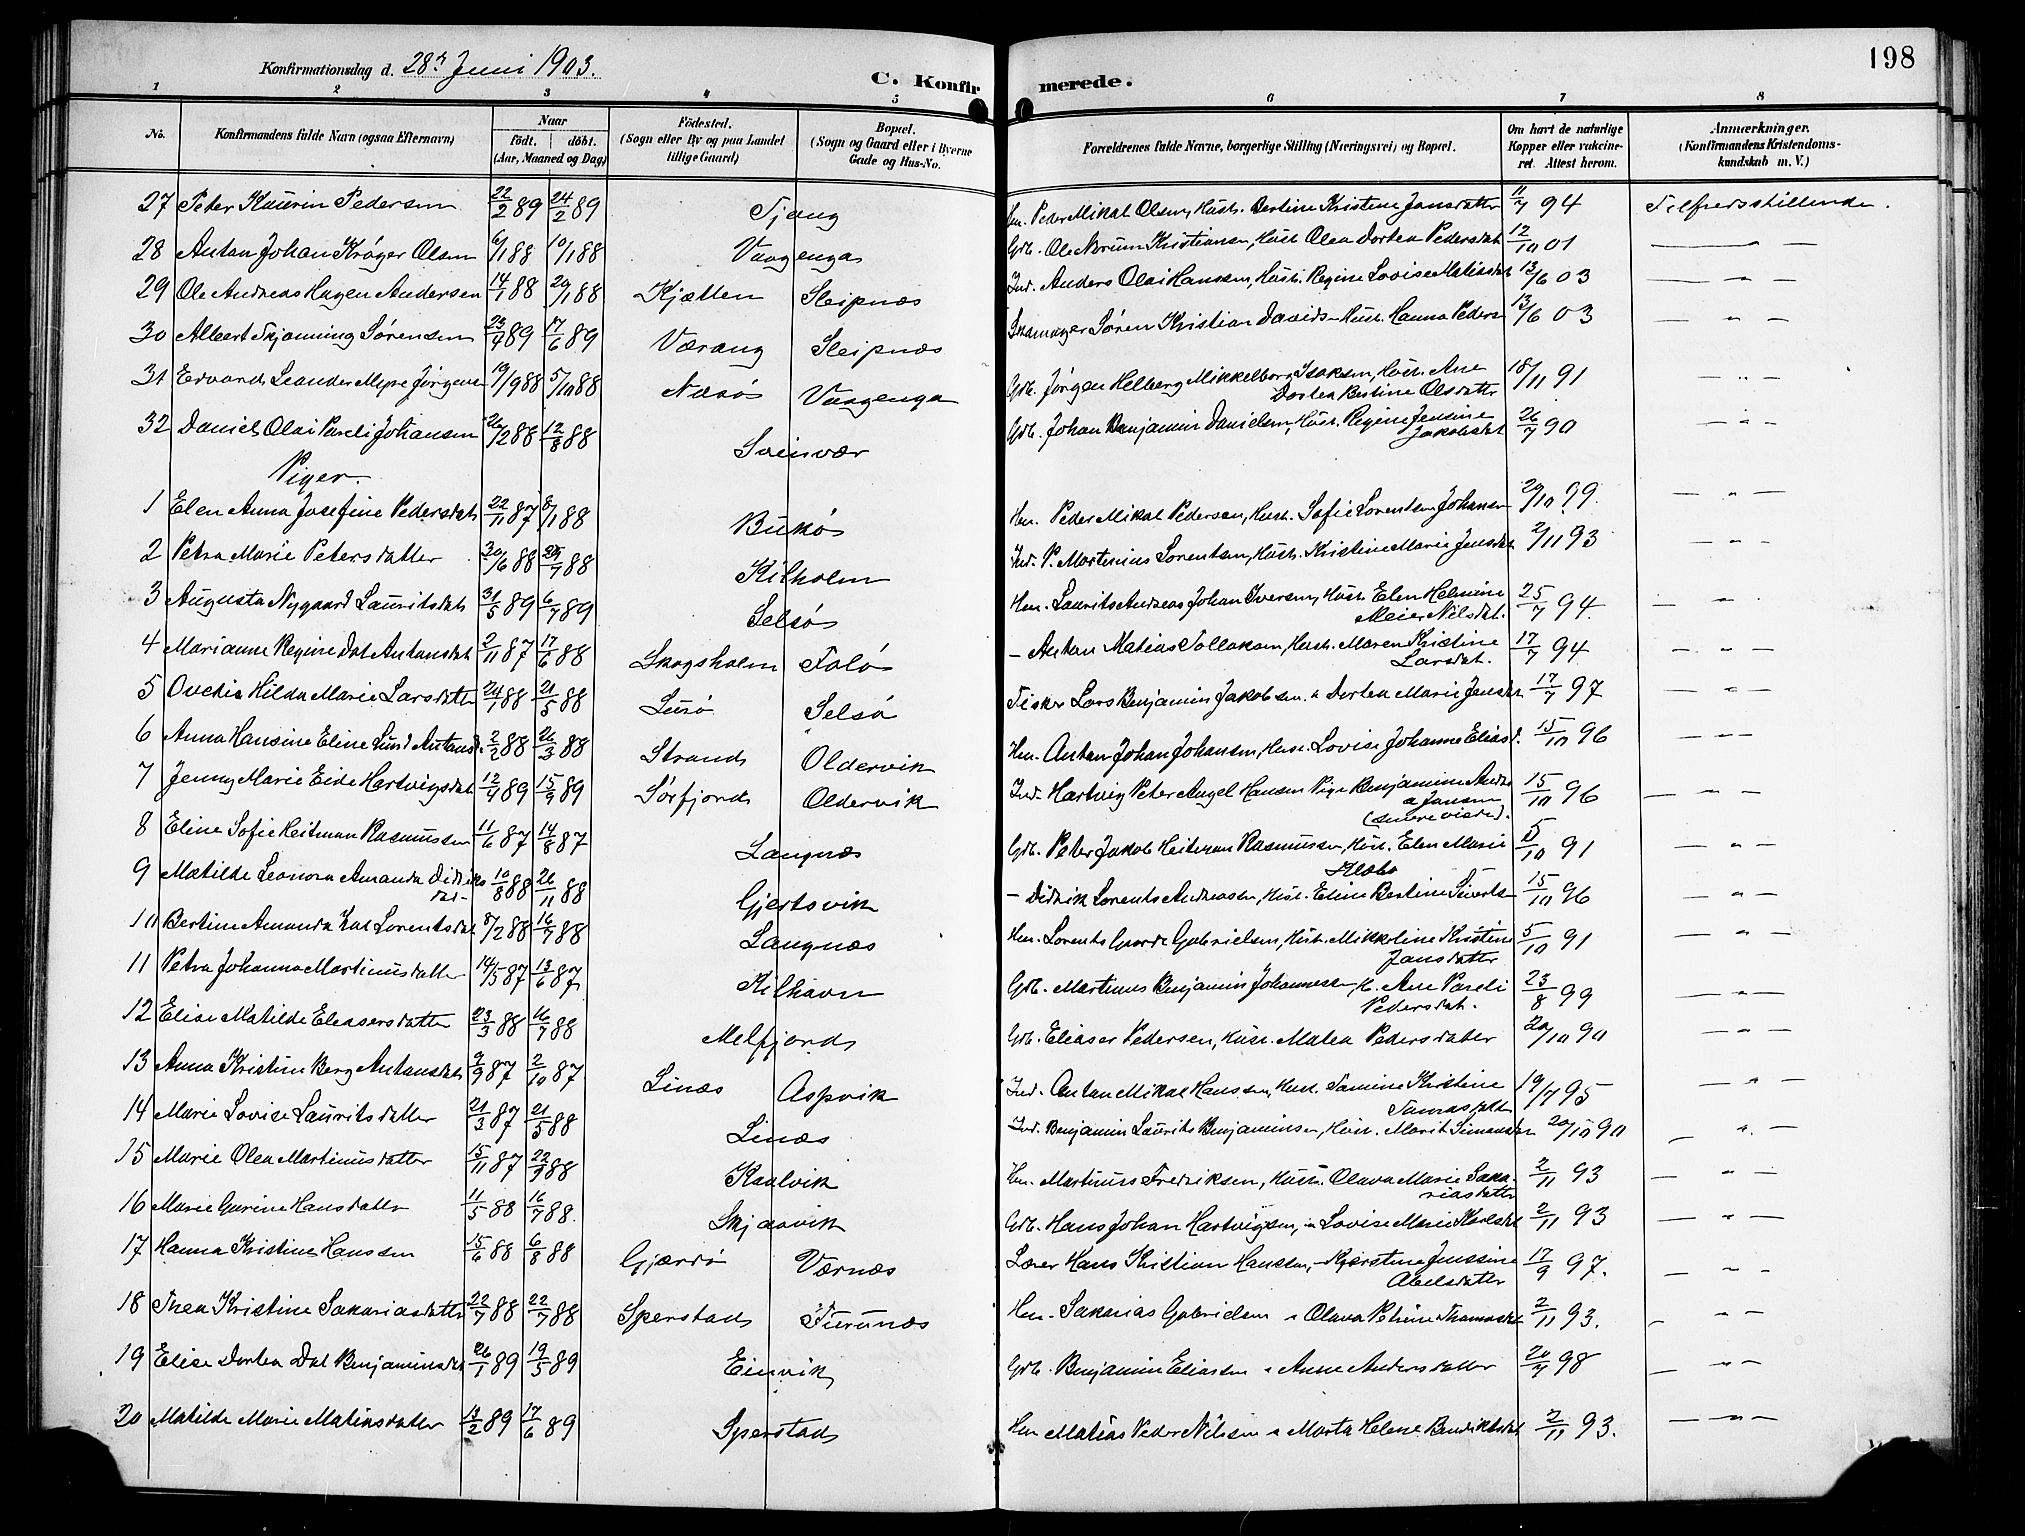 198
Konfirmationsdag d. 28de Juni 1903.
C. Konfirmerede.
1 2 3 4 5 6 7 8
No. Konfirmandens fulde Navn (ogsaa Efternavn) Naar født. døbt. (Aar, Maaned og Dag) Fødested. (Sogn eller By og paa Landet tillige Gaard) Bopæl. (Sogn og Gaard eller i Byerne Gade og Hus-No. Forældrenes fulde Navne, borgerlige Stilling (Næringsvei) og Bopæl. Om havt de naturlige Kopper eller vaccineret. Attest herom. Anmærkninger. (Konfirmandens Kristendomskundskab m. V.)
27 Peter Kaurin Pedersen 22/2 89 24/2 89 Tjong Hm. Peder Mikal Olsen, Hust. Bertine Kristine Jansdatter 11/7 94 Tilfredsstillende.
28 Antan Johan Krøger Olsen 6/1 88 10/1 88 Vaagenga Grb. Ole Norum Kristiansen, Hust. Olea Dortea Pedersdat 12/10 01 — " —
29 Ole Andreas Hagen Andersen 14/1 88 29/1 88 Kjætten Sleipnæs Ind. Anders Olai Hansen, Hust. Regine Lovise Matiasdat 13/6 03 — " —
30 Albert Skjønning Sørensen 23/4 89 17/6 89 Værang Sleipnæs Skomager Søren Kristian Davids- Hust. Hanna Peders 13/6 03 — " —
31 Edvard Leander Myre Jørgens 19/9 88 5/10 88 Næsø Vaagenga Grb. Jørgen Helberg Mikkelborg Isaksen, Hust. Ane Dortea Bertine Olsdatter 18/11 91 — " —
32 Daniel Olai Pareli Johansen 26/2 88 12/8 88 Svinvær Grb. Johan Benjamin Danielsen, Hust. Regine Jensine Jakobsdat 26/7 90 — " —
Piger.
1 Elen Anna Josefine Pedersdat 22/11 87 8/1 88 Bukø Hm. Peder Mikal Pedersen, Hust. Sofie Lorentsen Johansen 29/10 99. — " —
2 Petra Marie Petersdatter 30/6 88 29/7 88 Kilholm Ind. P. Martinius Lorentsen, Hust. Kristine Marie Jensdat 2/11 93 — " —
3 Augusta Nygaard Lauritsdat 31/5 89 6/7 89 Selsø Hm. Laurits Andreas Johan Iversen, Hust. Elen Helmine Meier Nilsdat. 25/7 94. — " —
4 Marianne Regine Dat Antansdat 2/11 87 17/6 88 Skogsholm Tolø - Antan Matias Tollaksen, Hust. Maren Kristine Larsdat. 17/7 94 — " —
5 Ovedia Hilda Marie Larsdatter 24/1 88 21/5 88 Lurø Selsø Fisker Lars Benjamin Jakobsen " Dortea Marie Jensdat 17/7 97 — " —
6 Anna Hansine Eline Lund Antansd. 2/2 88 26/3 88 Strand Oldervik Hm. Antan Johan Johansen, Hust. Lovise Johanne Eliasd. 15/10 96 — " —
7 Jenny Marie Eide Hartvigsdat 12/4 89 15/9 89 Sørfjord Oldervik Ind. Hartvig Peter Angel Hansen Pige Benjamine Andrea Jansen 15/10 96 — " —
8 Eline Sofie Heitman Rasmussen 11/6 87 14/8 87 Langnæs Grb. Peter Jakob Heitman Rasmussen, Hust. Elen Marie Klæbo 5/10 91 — " —
9 Matilde Leonora Amanda Didriksdat- 10/8 88 26/11 88 Gjertsvik - Didrik Lorents Andreassen, Hust. Eline Bertine Siverts 15/10 96 — " —
10 Bertine Amanda Kat Lorentsdat 8/2 88 16/7 88 Langnæs Hm. Lorents Gabrielsen, Hust. Mikkoline Kristine Jansdatter 5/10 91 — " —
11 Petra Johanna Martinusdatter 14/5 87 13/6 87 Kilhavn Grb. Martinus Benjamin Johannessen H. Ane Pareli Pedersdat. 23/8 99 — " —
12 Elise Matilde Eleasersdatter 23/3 88 16/7 88 Melfjord Grb. Elieser Pedersen, Hust. Malea Pedersdatter 20/10 90 — " —
13 Anna Kristine Berg Antansdat 9/9 87 2/10 87 Linæs Aspvik Ind. Antan Mikal Hanssen, Hust. Tamine Kristine Tamasdatter 19/7 95 — " —
14 Marie Lovise Lauritsdatter 21/3 87 21/5 88 Linæs Ind. Benjamin Laurits Benjaminsen, Hust. Marit Simonsdat 20/10 90 — " —
15 Marie Olea Martinusdatter 15/11 87 22/9 88 Kaalvik Hm. Martinus Fredriksen, Hust. Olava Marie Sakariasdatter 2/11 93 — " —
16 Marie Gurine Hansdatter 11/5 88 16/7 88. Skjaavik Grb. Hans Johan Hartvigsen, " Lovise Marie Karlsdat 2/11 93 — " —
17 Hanna Kristine Hanssen 15/6 88 6/8 88 Gjærdø Værnæs Lærer Hans Kristian Hanssen, - Kjerstine Jenssine Abelsdatter 17/9 97. — " —
18 Thea Kristine Sakariasdatter 22/7 88 22/7 88 Sperstad Furunæs Hm. Sakarias Gabrielsen " Olava Petrine Thomasdat 2/11 93. — " —
19 Elise Dortea Dat Benjaminsdat 26/1 89 19/5 89 Einvik Grb. Benjamin Eliassen " Anne Andersdatter 20/7 98 — " —
20 Matilde Marie Matiasdatter 14/2 89 17/6 89 Sperstad Hm Matias Peder Nilssen " Marta Helene Bendiktsdat 2/11 93. — " —